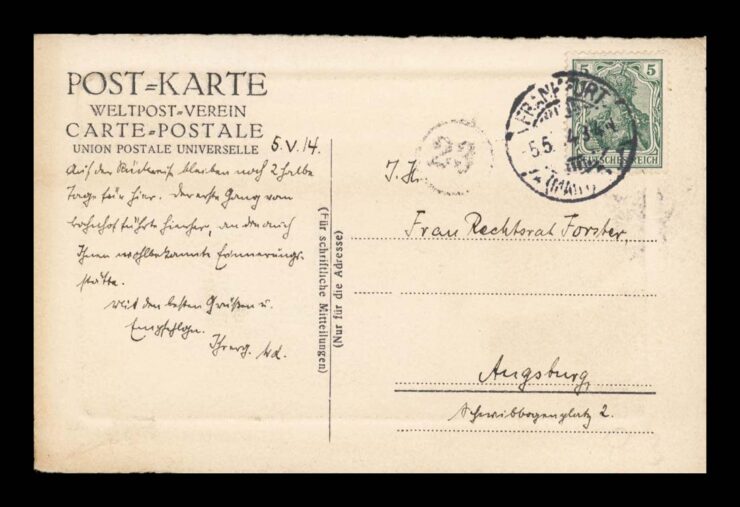 POST=KARTE
WELTPOST=VEREIN
CARTE=POSTALE
UNION POSTALE UNIVERSELLE
5.V.14.
Auf der Rückreise bleiben noch 2 halbe
Tage für hier. Der erste Gang vom
Bahnhof führte hierher, an die auch
Ihnen wohlbekannte Erinnerungs-
stätte.
Mit den besten Grüßen u.
Empfehlgn.
Ihr erg.
(Für schriftliche Mitteilungen)
(Nur für die Adresse)
23
FRANKFURT
5.5.
(MAIN)
5 5
DEUTSCHES REICH
I. H.
Frau Rechtsrat Forster,
Augsburg,
Schwibbogenplatz 2.